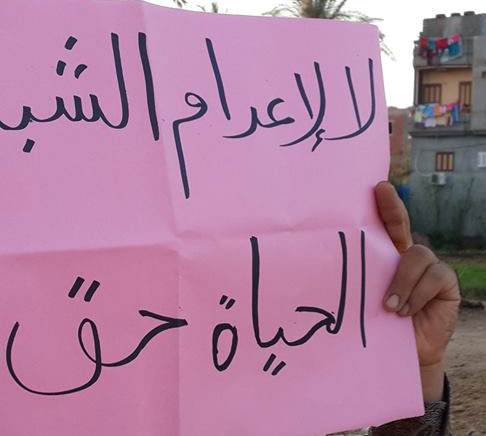 لا لإعدام الشبـ
الحياة حق